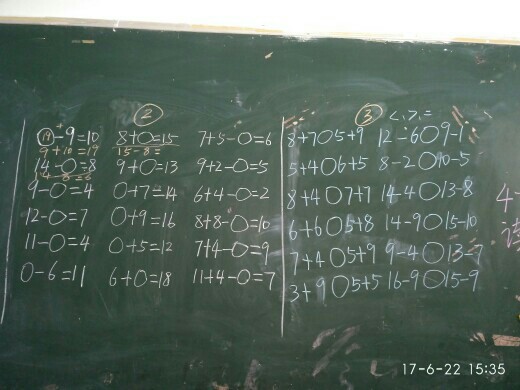 ② ③ <.>.=
⑲-9=10 8+○=15 7+5-○=6 8+7○5+9 12-6○9-1
9+10=19 15-8=
14-○=8 9+○=13 9+2-○=5 5+4○6+5 8-2○10-5
14-8=6
9-○=4 ○+7=14 6+4-○=2 8+4○7+7 14-4○13-8
12-○=7 ○+9=16 8+8-○=10 6+6○5+8 14-9○15-10
11-○=4 ○+5=12 7+4-○=9 7+4○5+9 9-4○13-7
○-6=11 6+○=18 11+4-○=7 3+9○5+5 16-9○15-9
17-6-22 15:35